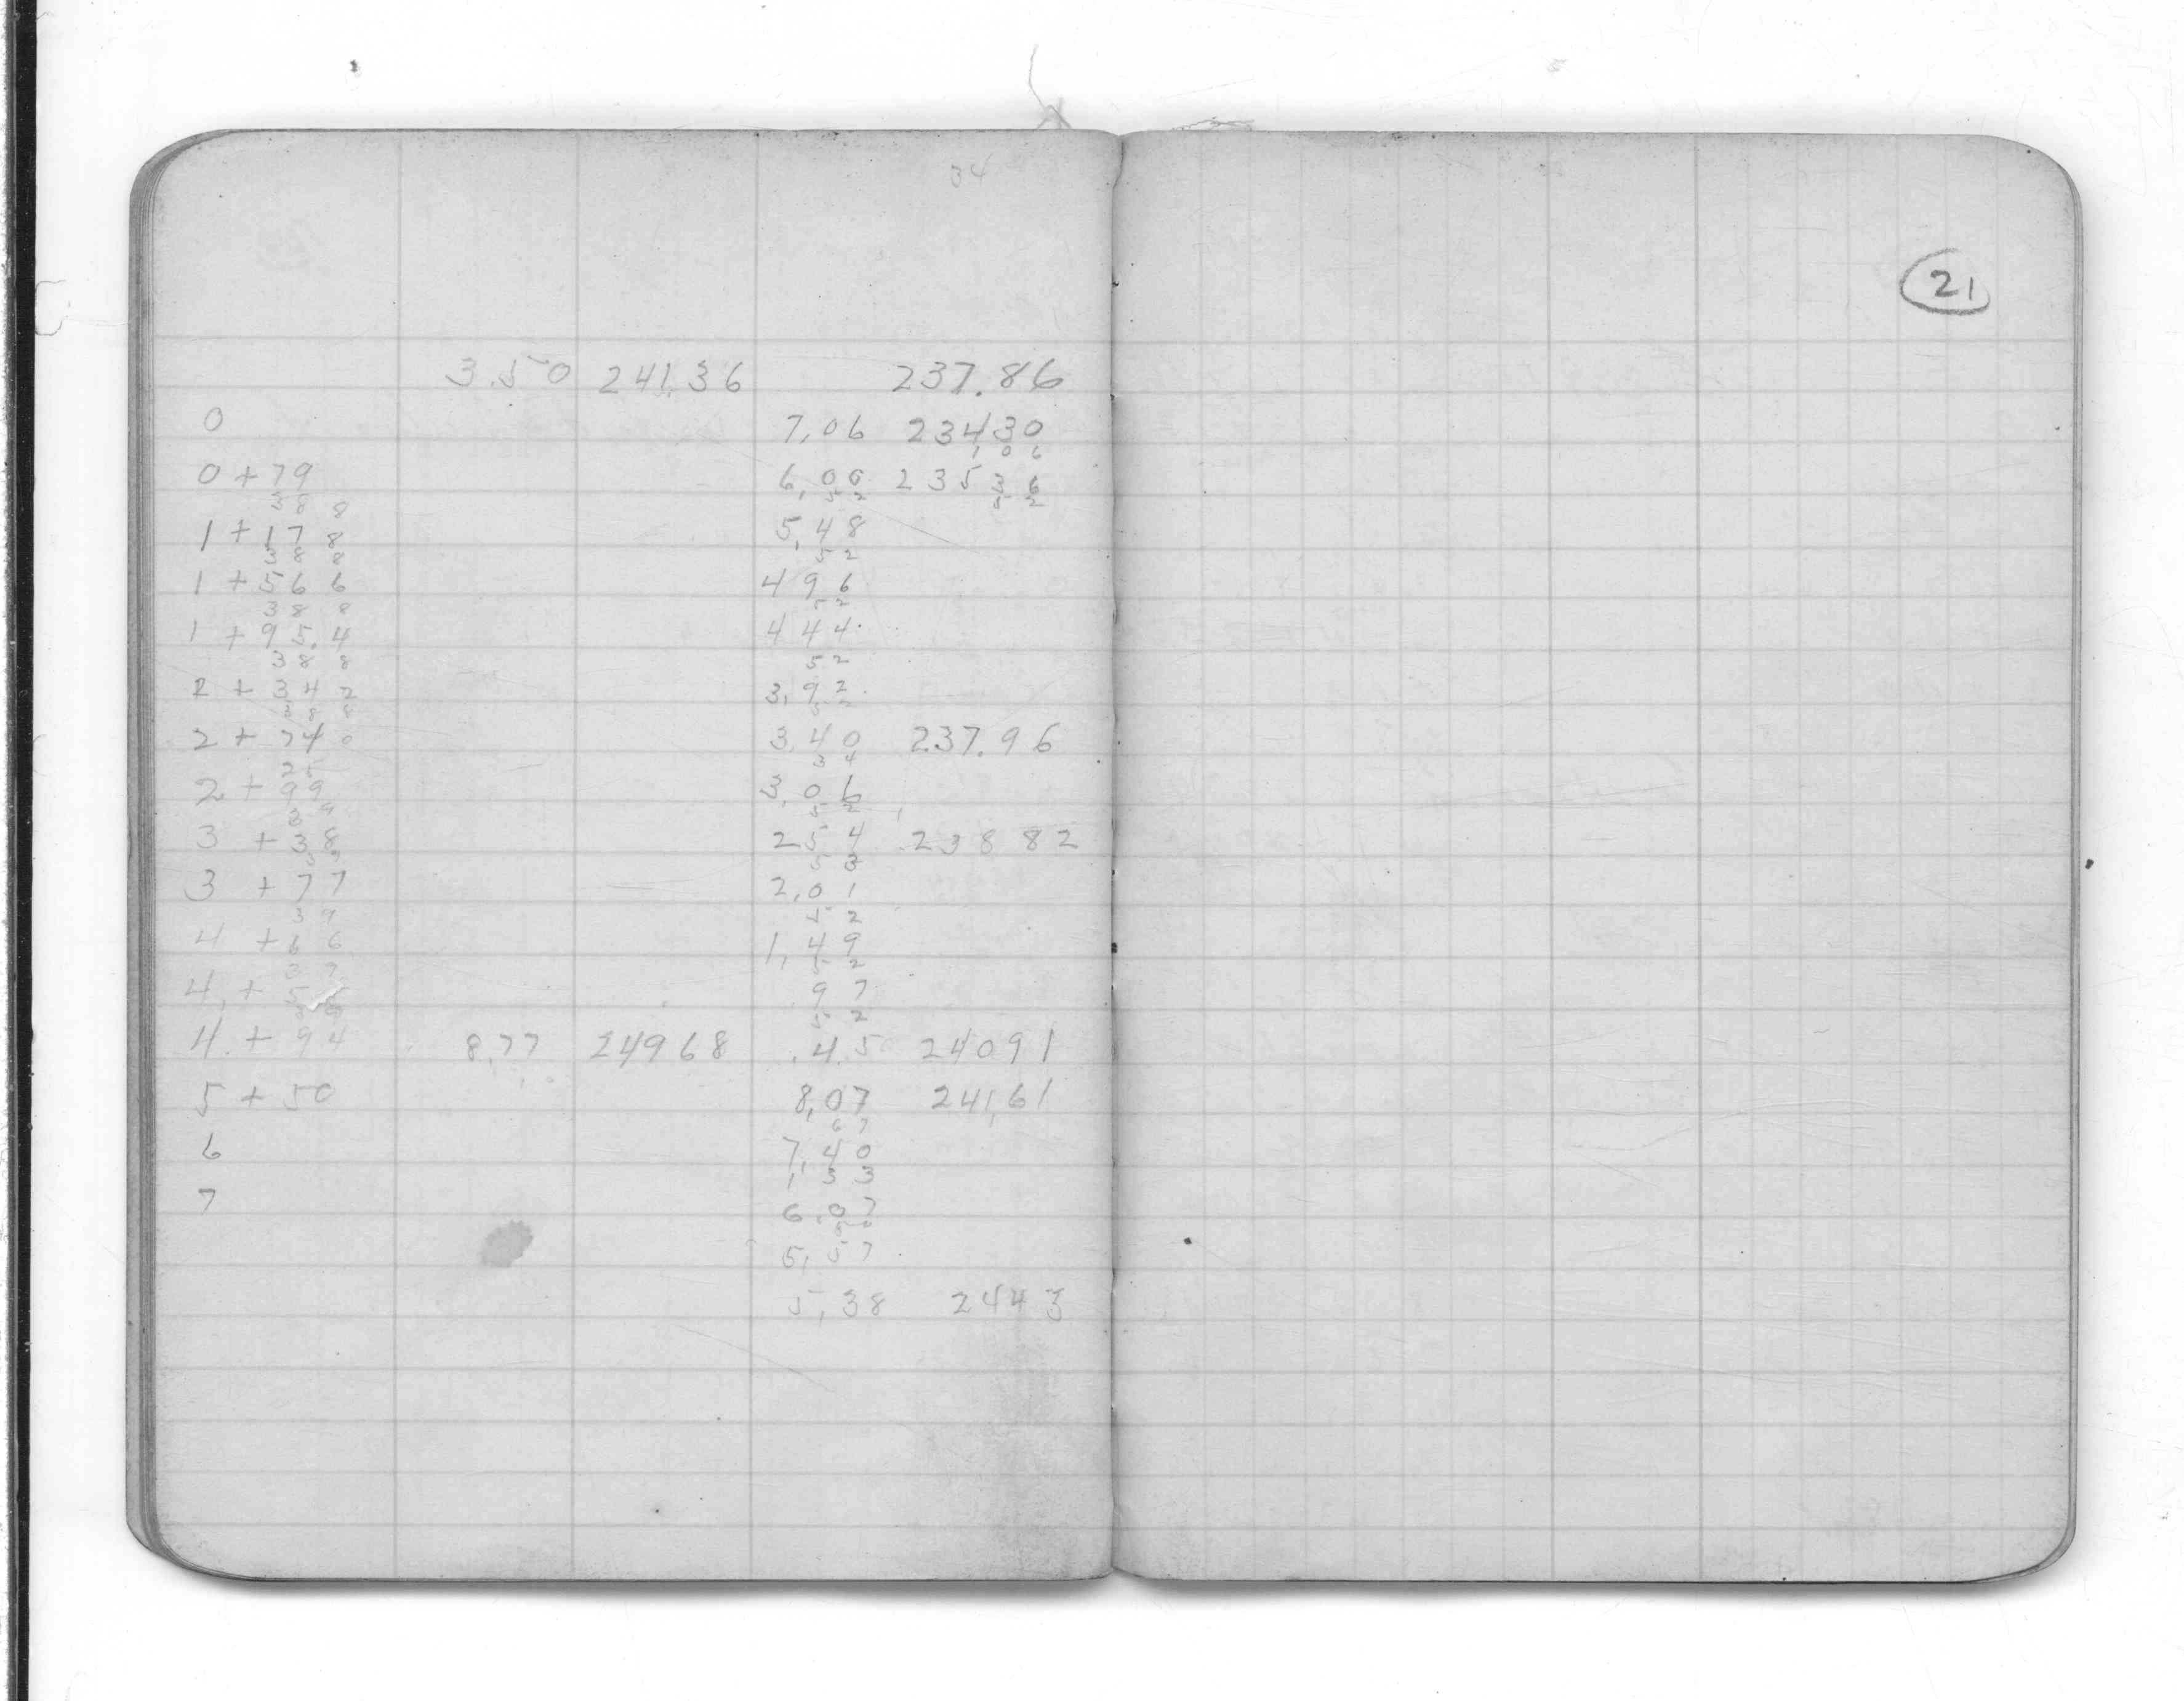 34
3.50 241.36 237.86
0 7,06 23430
1 0 6
0 + 79 6,00 235 36
38 8 52 52
1 + 17 8 5,48
38 8 52
1 + 56 6 4 96
38 8 52
1 + 95.4 4 44
38 8 52
2 + 34 2 3,92
38 8 52
2 + 74 0 3,40 237.96
34
2 + 99 3,06
39 52
3 + 38 2 54 238 82
53
3 + 77 2,01
39 52
4 + 6 6 1,49
52
4 + 5 97
52
4 + 94 8,77 24968 .45 24091
5 + 50 8,07 241,61
67
6 7,40
1 33
7 6,07
50
5,57
5,38 244 3
21